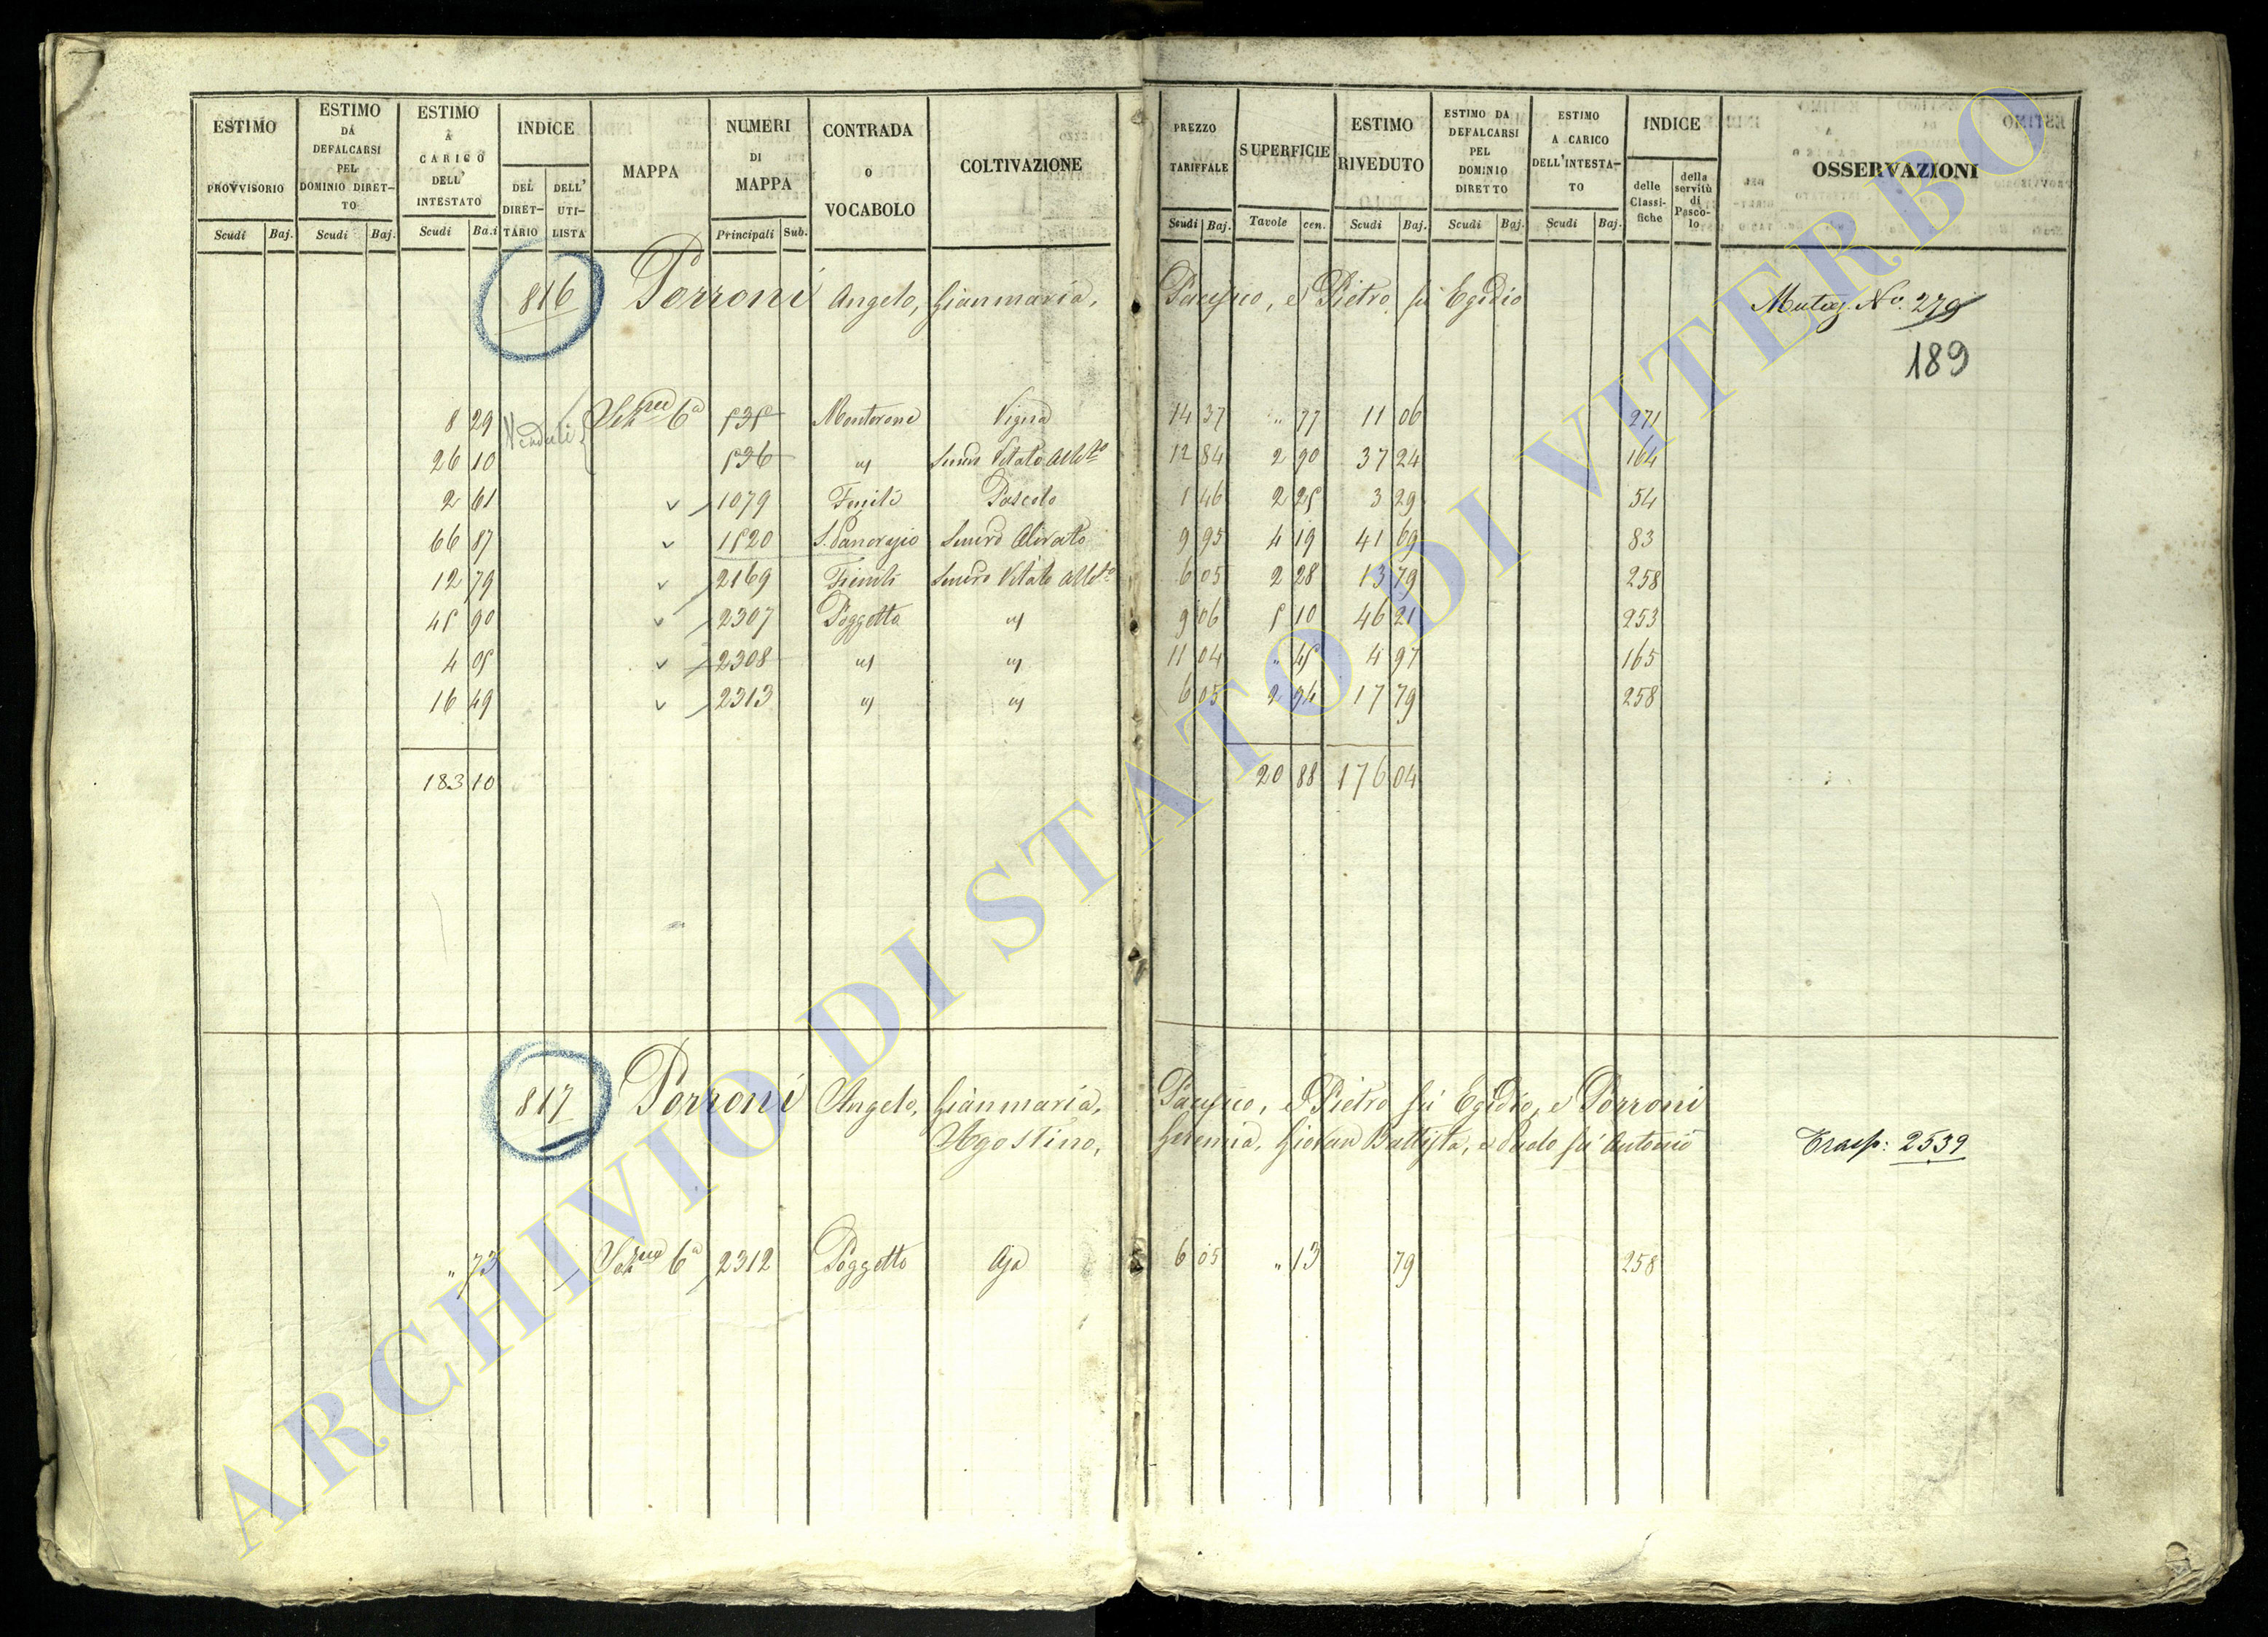 ESTIMO PROVVISORIO
ESTIMO DA DEFALCARSI PEL DOMINIO DIRET-TO
ESTIMO A CARICO DELL' INTESTATO
INDICE
DEL DIRET-TARIO
DELL' UTI-LISTA
MAPPA
NUMERI DI MAPPA
CONTRADA O VOCABOLO
COLTIVAZIONE
PREZZO TARIFFALE
SUPERFICIE
ESTIMO RIVEDUTO
ESTIMO DA DEFALCARSI PEL DOMINIO DIRETTO
ESTIMO A CARICO DELL'INTESTA-TO
INDICE
delle Classi-fiche
della servitù di Pasco-lo
OSSERVAZIONI
Scudi Baj. Scudi Baj. Scudi Ba.i Principali Sub. Scudi Baj. Tavole cen. Scudi Baj. Scudi Baj. Scudi Baj.
816 Porroni Angelo, Gianmaria, Pacifico, e Pietro fù Egidio Mutaz. No. 279
189
8 29 Venduti Sez.ne 6a 535 Monterone Vigna 14 37 " 77 11 06 271
26 10 536 " Semvo Vitato Allto 12 84 2 90 37 24 164
2 61 v 1079 Fenili Pascolo 1 46 2 25 3 29 54
66 87 v 1520 S. Pancrazio Semvo Olivato 9 95 4 19 41 69 83
12 79 v 2169 Fienili Semvo Vitato Allto 6 05 2 28 13 79 258
45 90 v 2307 Poggetto " 9 06 5 10 46 21 253
4 05 v 2308 " " 11 04 " 45 4 97 165
16 49 v 2313 " " 6 05 2 94 17 79 258
183 10 20 88 176 04
817 Porroni Angelo, Gianmaria, Pacifico, e Pietro fù Egidio, e Porroni
Agostino, Geremia, Giovan Battista, e Paolo fù Antonio Trasp: 2539
" 73 Sez.ne 6a 2312 Poggetto Aja 6 05 " 13 79 258
ARCHIVIO DI STATO DI VITERBO